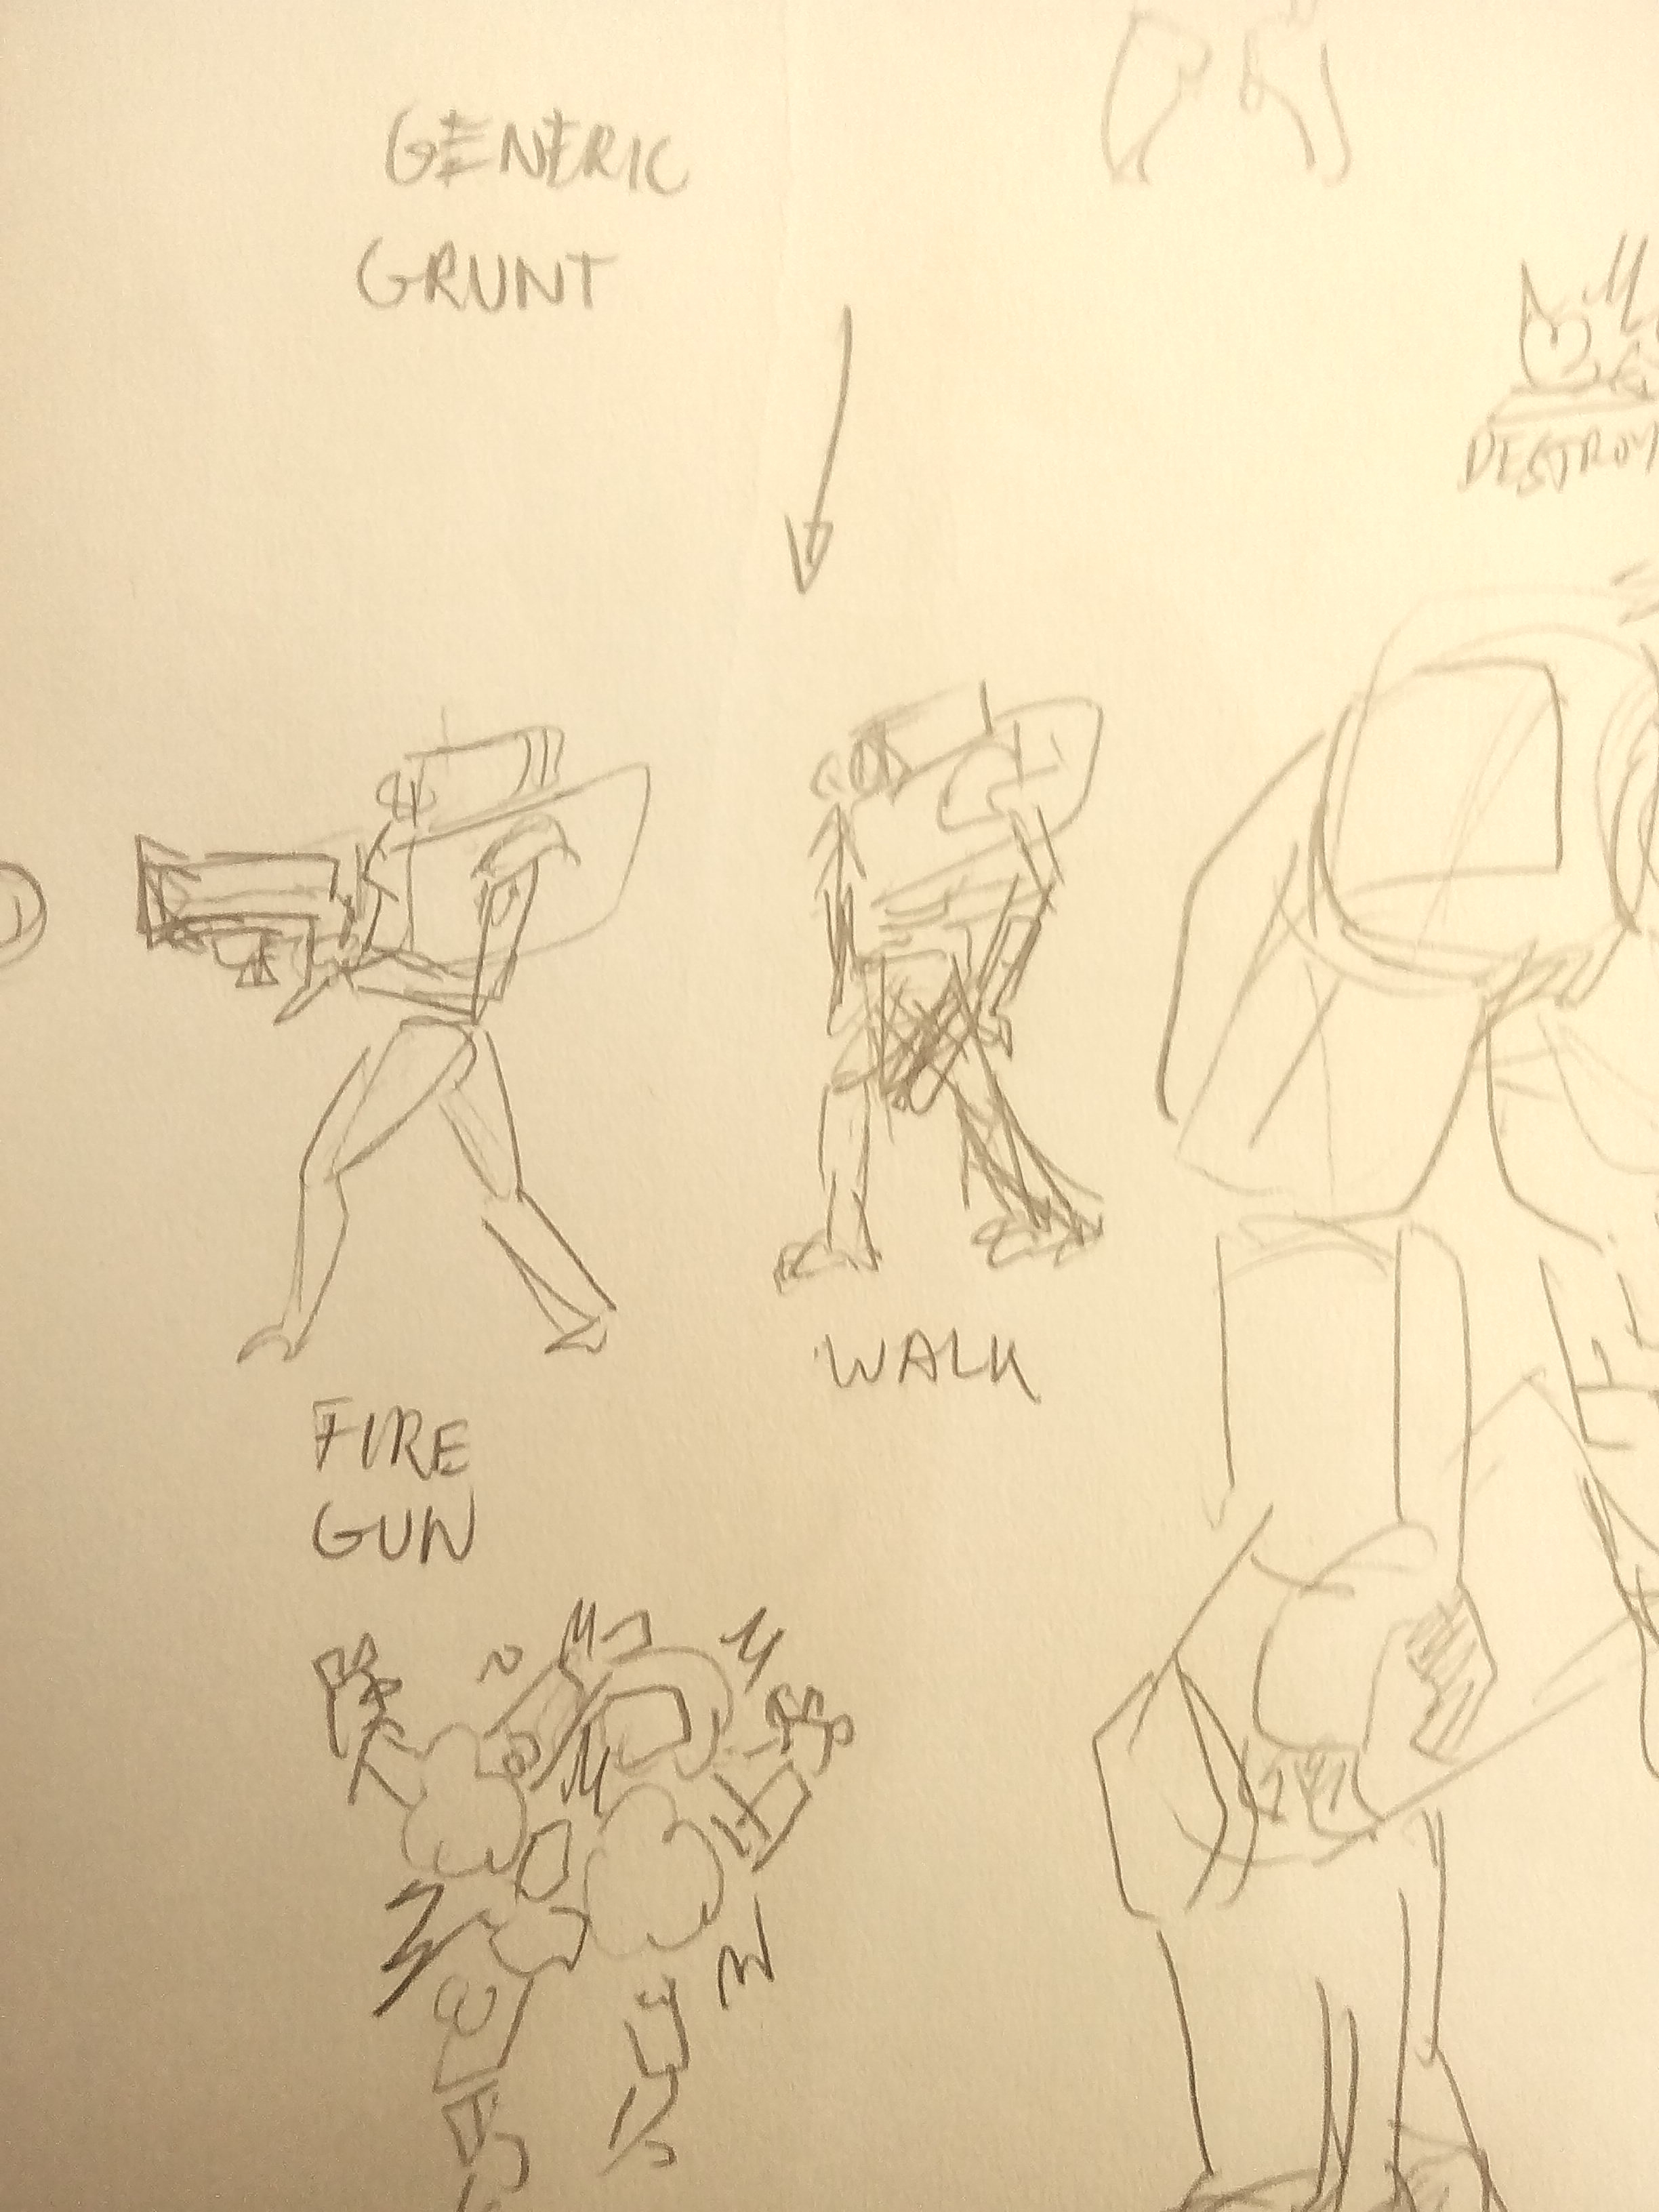 GENERIC
GRUNT
DESTROY
WALK
FIRE
GUN